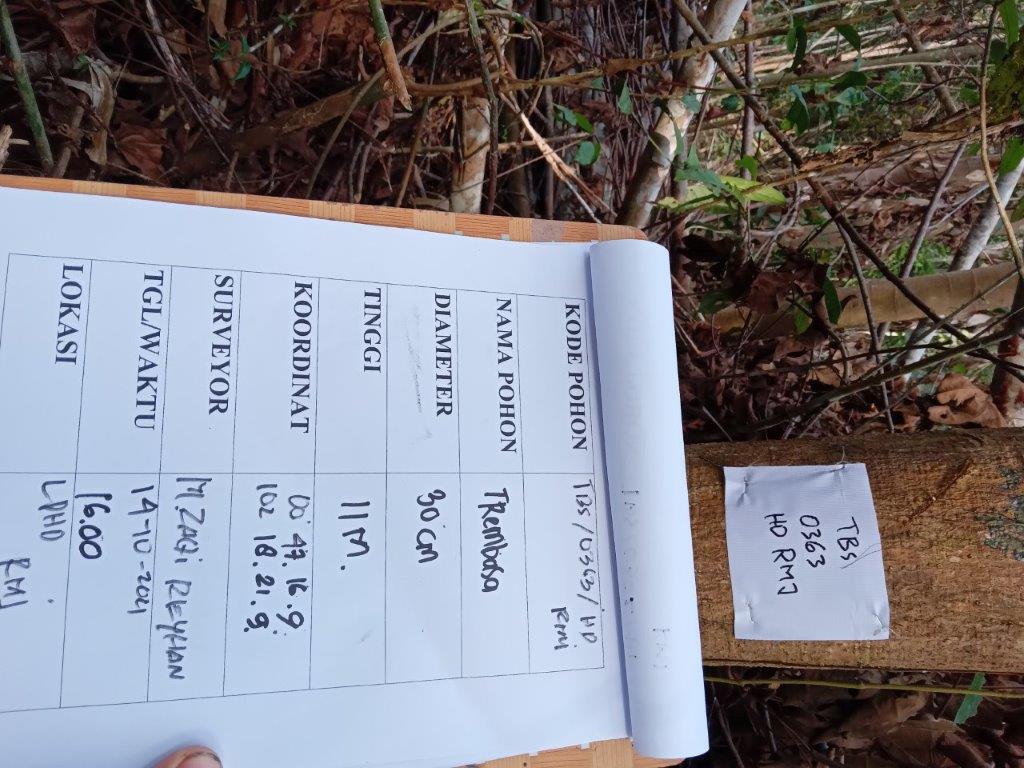 TBS
0363
HD RMJ
KODE POHON TBS/0363/HD
RMJ
NAMA POHON TRembasa
DIAMETER 30 cm
TINGGI 11 M.
KOORDINAT 00 47. 16.9.
102 18.21.9.
SURVEYOR M.ZAQi REYHAN
TGL/WAKTU 14-10-2021
16.00
LOKASI LPHD
RMJ